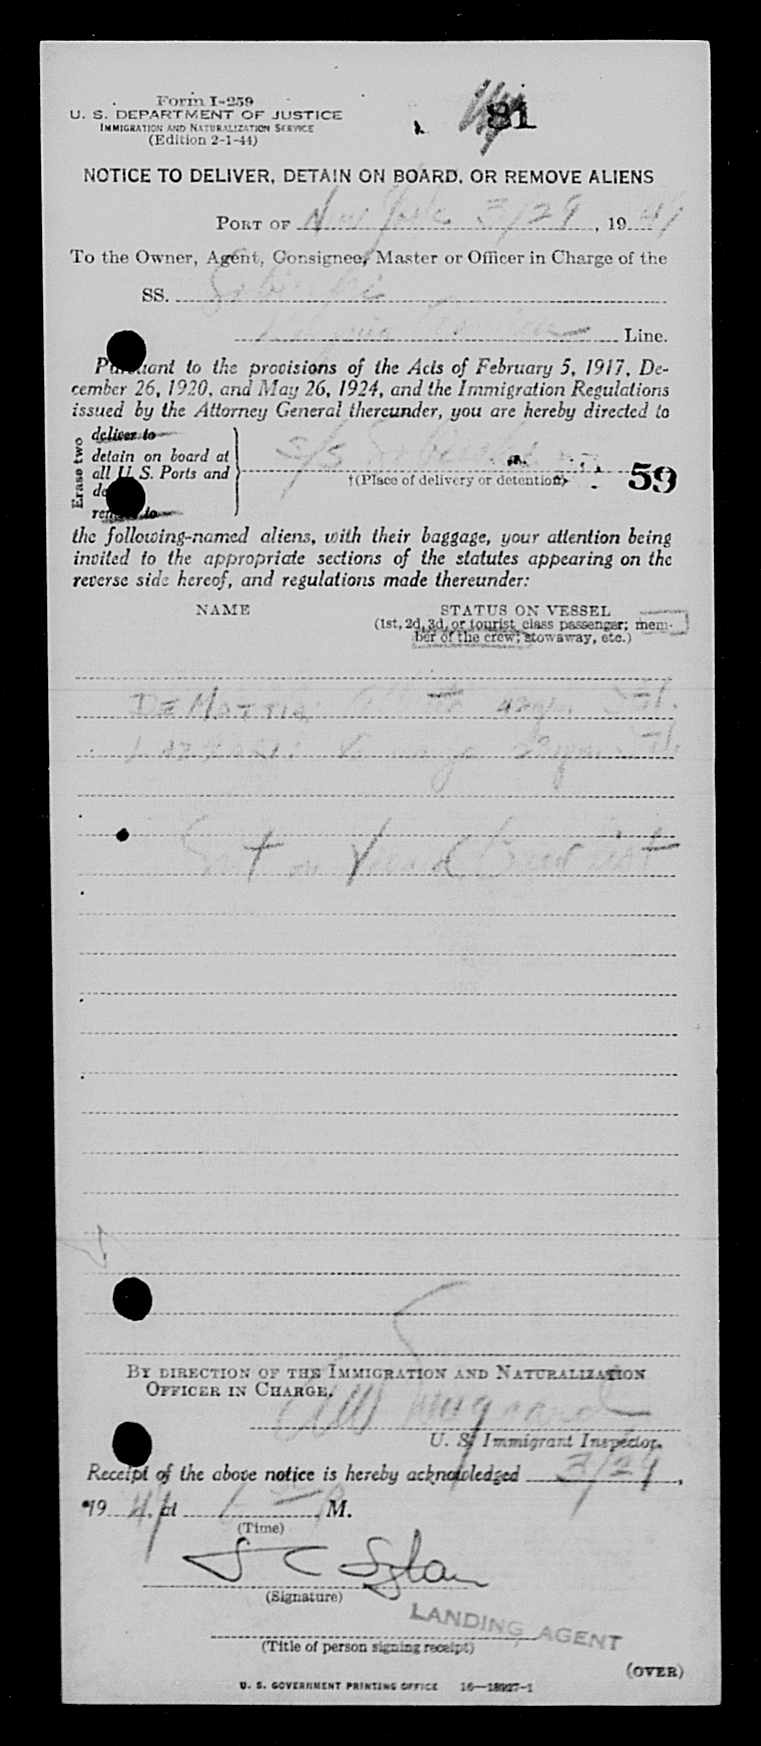 Form I-259
U. S. DEPARTMENT OF JUSTICE
IMMIGRATION AND NATURALIZATION SERVICE
(Edition 2-1-44)
81
NOTICE TO DELIVER, DETAIN ON BOARD, OR REMOVE ALIENS
PORT OF New York 3/29, 19 47
To the Owner, Agent, Consignee, Master or Officer in Charge of the
SS. Sobieski
Line.
Pursuant to the provisions of the Acts of February 5, 1917, De-
cember 26, 1920, and May 26, 1924, and the Immigration Regulations
issued by the Attorney General thereunder, you are hereby directed to
Erase two
deliver to
detain on board at
all U. S. Ports and
remove to
S/S Sobieski
†(Place of delivery or detention)
59
the following-named aliens, with their baggage, your attention being
invited to the appropriate sections of the statutes appearing on the
reverse side hereof, and regulations made thereunder:
NAME
STATUS ON VESSEL
(1st, 2d, 3d, or tourist class passenger; mem-
ber of the crew; stowaway, etc.)
DE MATTIA 42 yrs.
yrs.
Crew list
BY DIRECTION OF THE IMMIGRATION AND NATURALIZATION
OFFICER IN CHARGE.
U. S. Immigrant Inspector.
Receipt of the above notice is hereby acknowledged 3/29,
19 47, at M.
(Time)
(Signature)
LANDING AGENT
(Title of person signing receipt)
(OVER)
U. S. GOVERNMENT PRINTING OFFICE 16—18927-1